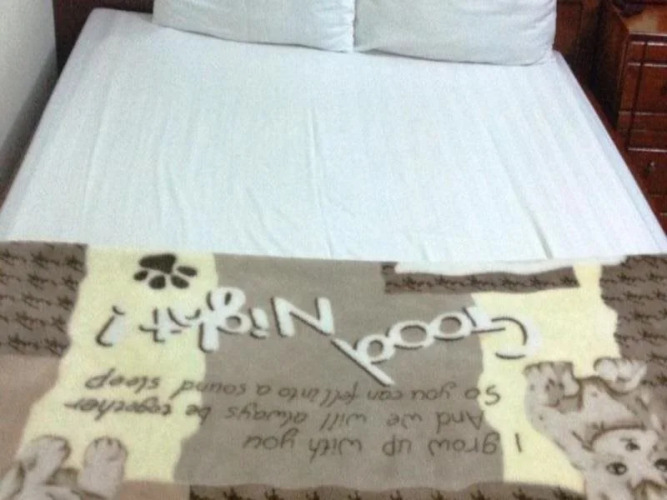 I grow up with you
And we will always be together
So you can fell into a sound sleep
Good Night!